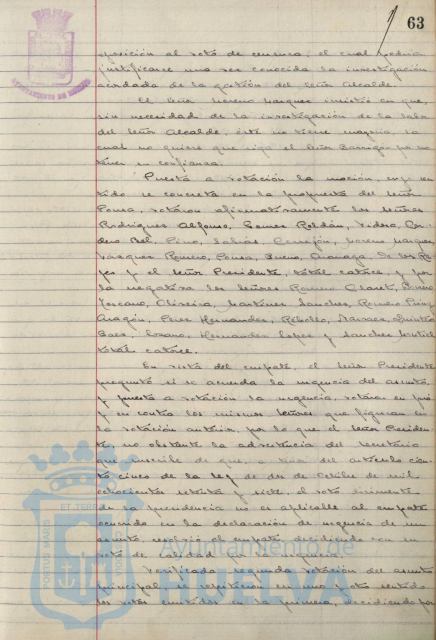 63
oposición al voto de censura, el cual podría
justificarse una vez conocida la investigación
acordada de la gestión del Señor Alcalde.
El Señor Moreno Marquez insistió en que,
sin necesidad de la investigación de la labor
del Señor Alcalde, éste no tiene mayoría, la
cual no quiere que siga el Señor Barrigón por no
tener en confianza.
Puesta a votación la moción, cuyo sen-
tido se concreta en la propuesta del Señor
Ponsa, votaron afirmativamente los Señores
Rodriguez Alfonso, Gomez Roldán, Vidosa, Cor-
dero Bel, Pino, Salas, Moreno Marquez,
Vazquez Romero, Ponsa, Bueno, de los Re-
yes y el Señor Presidente, total catorce, y por
la negativa los Señores Romero
Toscano, Oliveira, Martinez Sanchez, Romero
Aragón, Perez Hernandez, Rebollo, Narvaez, Quintero
Baez, Lozano, Hernandez Lopez y Sanchez
total catorce.
En vista del empate, el Señor Presidente
preguntó si se acuerda la urgencia del asunto,
y puesta a votación la urgencia, votaron en pró
y en contra los mismos Señores que figuran en
la votación anterior, por lo que el Señor Presiden-
te, no obstante la advertencia del Secretario
que suscribe de que, a tenor del artículo cien-
to cinco de la Ley de dos de Octubre de mil
ochocientos setenta y siete, el voto dirimente
de la presidencia no es aplicable al empate
ocurrido en la declaración de urgencia de un
asunto, resolvió el empate, decidiendo con su
voto de calidad
Verificada segunda votación del asunto
principal, se repitieron en uno y otro sentido
los votos emitidos en la primera, decidiendo por
Ayuntamiento de
HUELVA
PORTUS MARIS
ET TERRAE